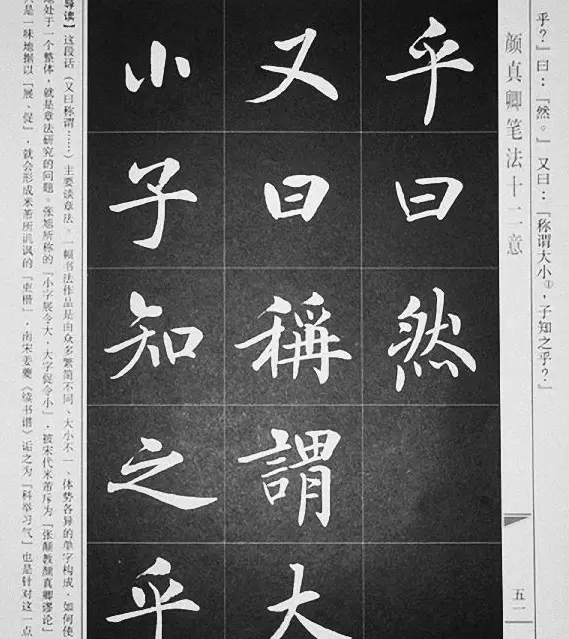 乎？」曰：「然。」又曰：「称谓大小①，子知之乎？」
颜真卿笔法十二意
五一
乎曰然
又曰稱謂大
小子知之乎
导读】这段话（又曰称谓……）主要谈章法。一幅书法作品是由众多繁简不同、大小不一、体势各异的单字构成，如何使
处于一个整体，就是章法研究的问题。张旭所称的「小字展令大，大字促令小」，被宋代米芾斥为「张颠教颜真卿谬论」
是一味地据以「展、促」，就会形成米芾所讥讽的「」，南宋姜夔《续书谱》诟之为「科举习气」也是针对这一点